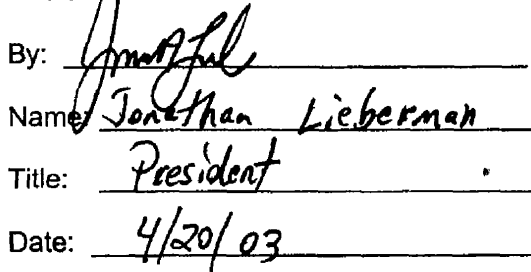 By:
Name: Jonathan Lieberman
Title: President
Date: 4/20/03